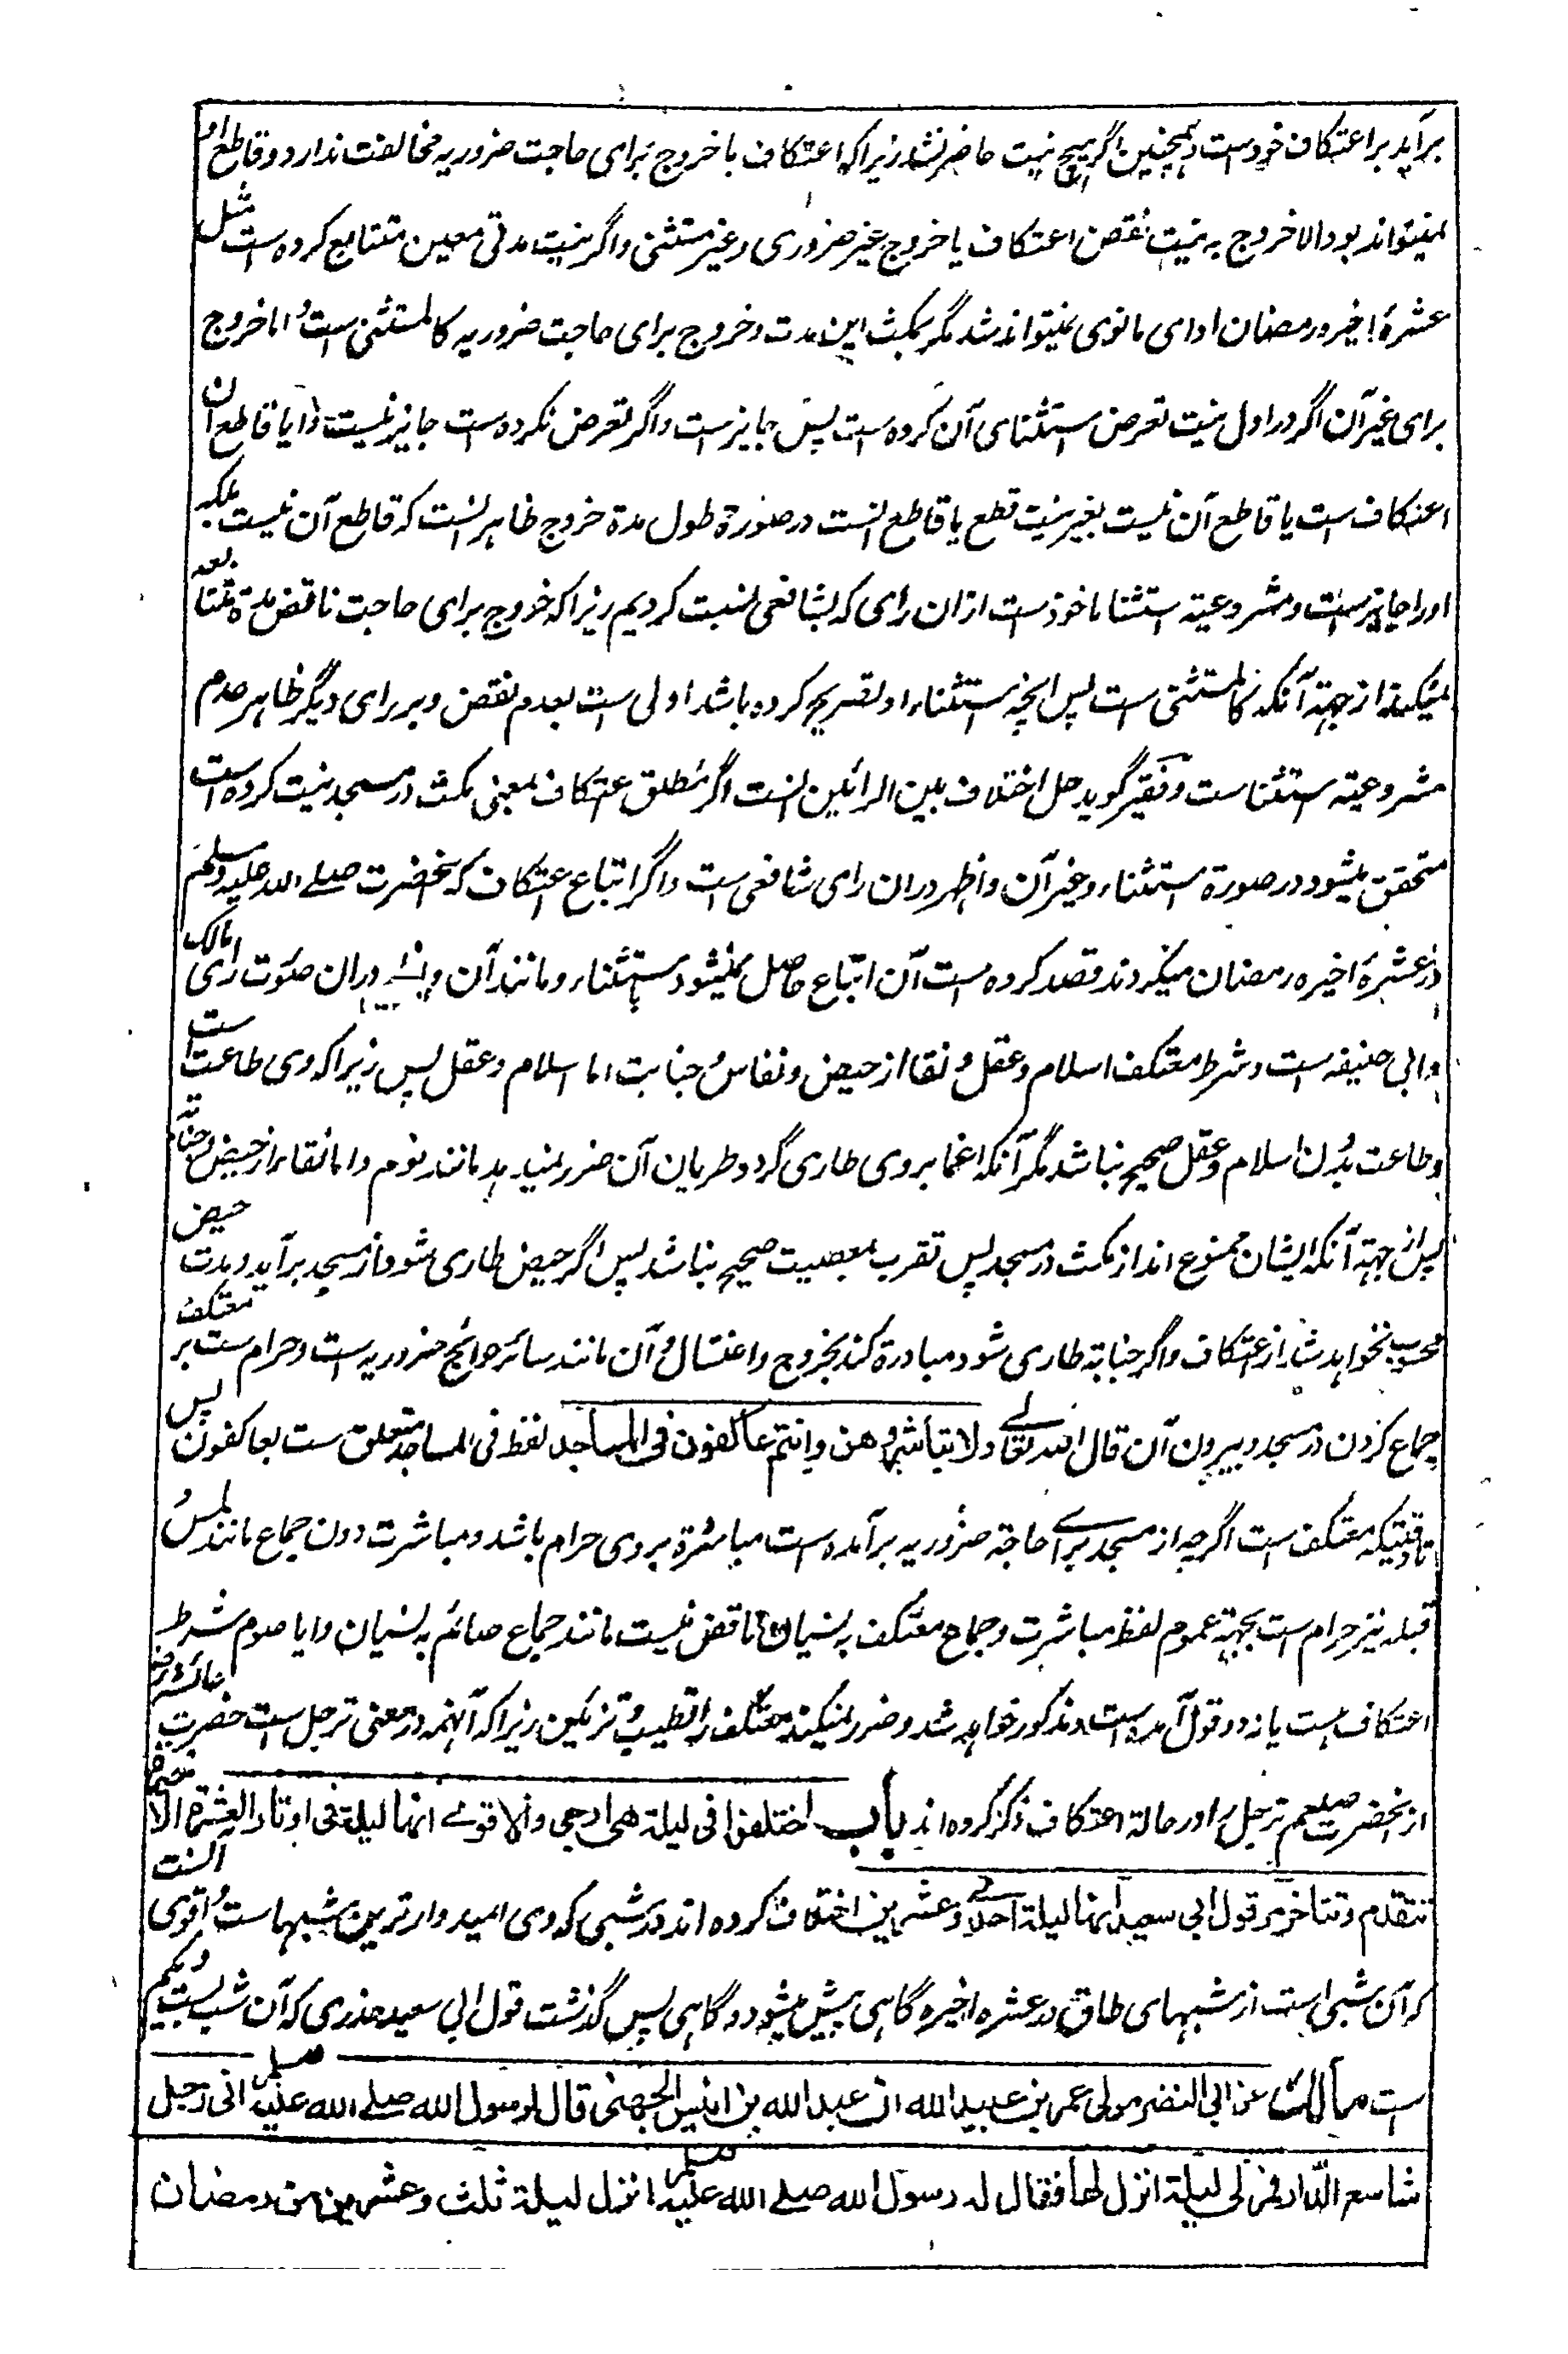 برآید بر اعتکاف خودست و همچنین اگر هیچ نیت حاضر نشد زیرا که اعتکاف با خروج برای حاجت ضروریه مخالفت ندارد و قاطع او
نمیتواند بود الا خروج به نیت نقض اعتکاف یا خروج غیر ضروری و غیر مستثنی و اگر نیت مدتی معین متتابع کرده است مثل
عشرهٔ اخیر رمضان ادای مانوی نمیتواند شد مگر بمکث این مدت و خروج برای حاجت ضروریه کالمستثنی است و اما خروج
برای غیر آن اگر در اول نیت تعرض استثنای آن کرده است پس جایز است و اگر تعرض نکرده است جایز نیست و آیا قاطع آن
اعتکاف ست یا قاطع آن نیست بغیر نیت قطع یا قاطع انست در صورة طول مدة خروج ظاهر انست که قاطع آن نیست بلکه
اورا جایزست و مشروعیة استثنا ماخوذست ازان رای که بشافعی نسبت کردیم زیرا که خروج برای حاجت ناقض مدة متتابعه
نمیکند از جهة آنکه کالمستثنی است پس انچه استثناء او تصریح کرده باشد اولی است بعدم نقض و بر رای دیگر ظاهر عدم
مشروعیة استثناست و فقیر گوید حل اختلاف بین الرائین انست اگر مطلق اعتکاف بمعنی مکث در مسجد نیت کرده است
متحقق میشود در صورة استثناء و غیر آن و اظهر دران رای شافعی است و اگر اتباع اعتکاف که آنحضرت صلے الله علیه وسلم
در عشرهٔ اخیره رمضان میکردند قصد کرده است آن اتباع حاصل نمیشود باستثناء و مانند آن دران صورت رای امام مالک
و ابی حنیفه است و شرط معتکف اسلام و عقل و نقا از حیض و نفاس و جنابت اما اسلام و عقل پس زیرا که وی طاعت است
و طاعت بدون اسلام و عقل صحیح نباشد مگر آنکه اغما بروی طاری گردد طریان آن ضرر نمیدهد مانند نوم و اما نقاء از حیض و جنابة
پس از جهة آنکه ایشان ممنوع اند از مکث در مسجد پس تقرب بمعصیت صحیح نباشد پس اگر حیض طاری شود از مسجد برآید و مدت حیض
محسوب نخواهد شد از اعتکاف و اگر جنابة طاری شود مبادرة کند بخروج و اغتسال و آن مانند سائر حوائج ضروریه است و حرام ست بر معتکف
جماع کردن در مسجد و بیرون آن قال الله تعالے ولا تباشروهن وانتم عاکفون فی المساجد لفظ فی المساجد متعلق ست بعاکفون پس
تا وقتیکه معتکف است اگرچه از مسجد براے حاجة ضروریه برآمده است مباشرة بروی حرام باشد و مباشرت دون جماع مانند لمس و
قبله نیز حرام است بجهة عموم لفظ مباشرت و جماع معتکف به نسیان ناقض نیست مانند جماع صائم به نسیان و آیا صوم شرط
اعتکاف هست یا نه دو قول آمده است و مذکور خواهد شد و ضرر نمیکند معتکف را تطییب و تزئین زیرا که آنهمه در معنی ترجل است حضرت عائشه رض
از آنحضرت صلعم ترجل را در حالة اعتکاف ذکر کرده اند باب اختلفوا فی لیلة هی ارجی والاقوے انها لیلة فی اوتار العشرة الاخیرة
تتقدم و تتاخر مر قول ابی سعید انها لیلة احدی و عشرین اختلاف کرده اند در شبی که وی امیدوارترین شبهاست و اقوی آنست
که آن شبی است از شبهای طاق در عشره اخیره گاهی پیش میشود و گاهی پس گذشت قول ابی سعید خدری که آن شب بست و یکم
است مالك عن ابی النضر مولی عمر بن عبید الله ان عبد الله بن انیس الجهنی قال لرسول الله صلے الله علیه وسلم انی رجل
شاسع الدار فمر لی لیلة انزل لها فقال له رسول الله صلے الله علیه وسلم انزل لیلة ثلث وعشرین من رمضان